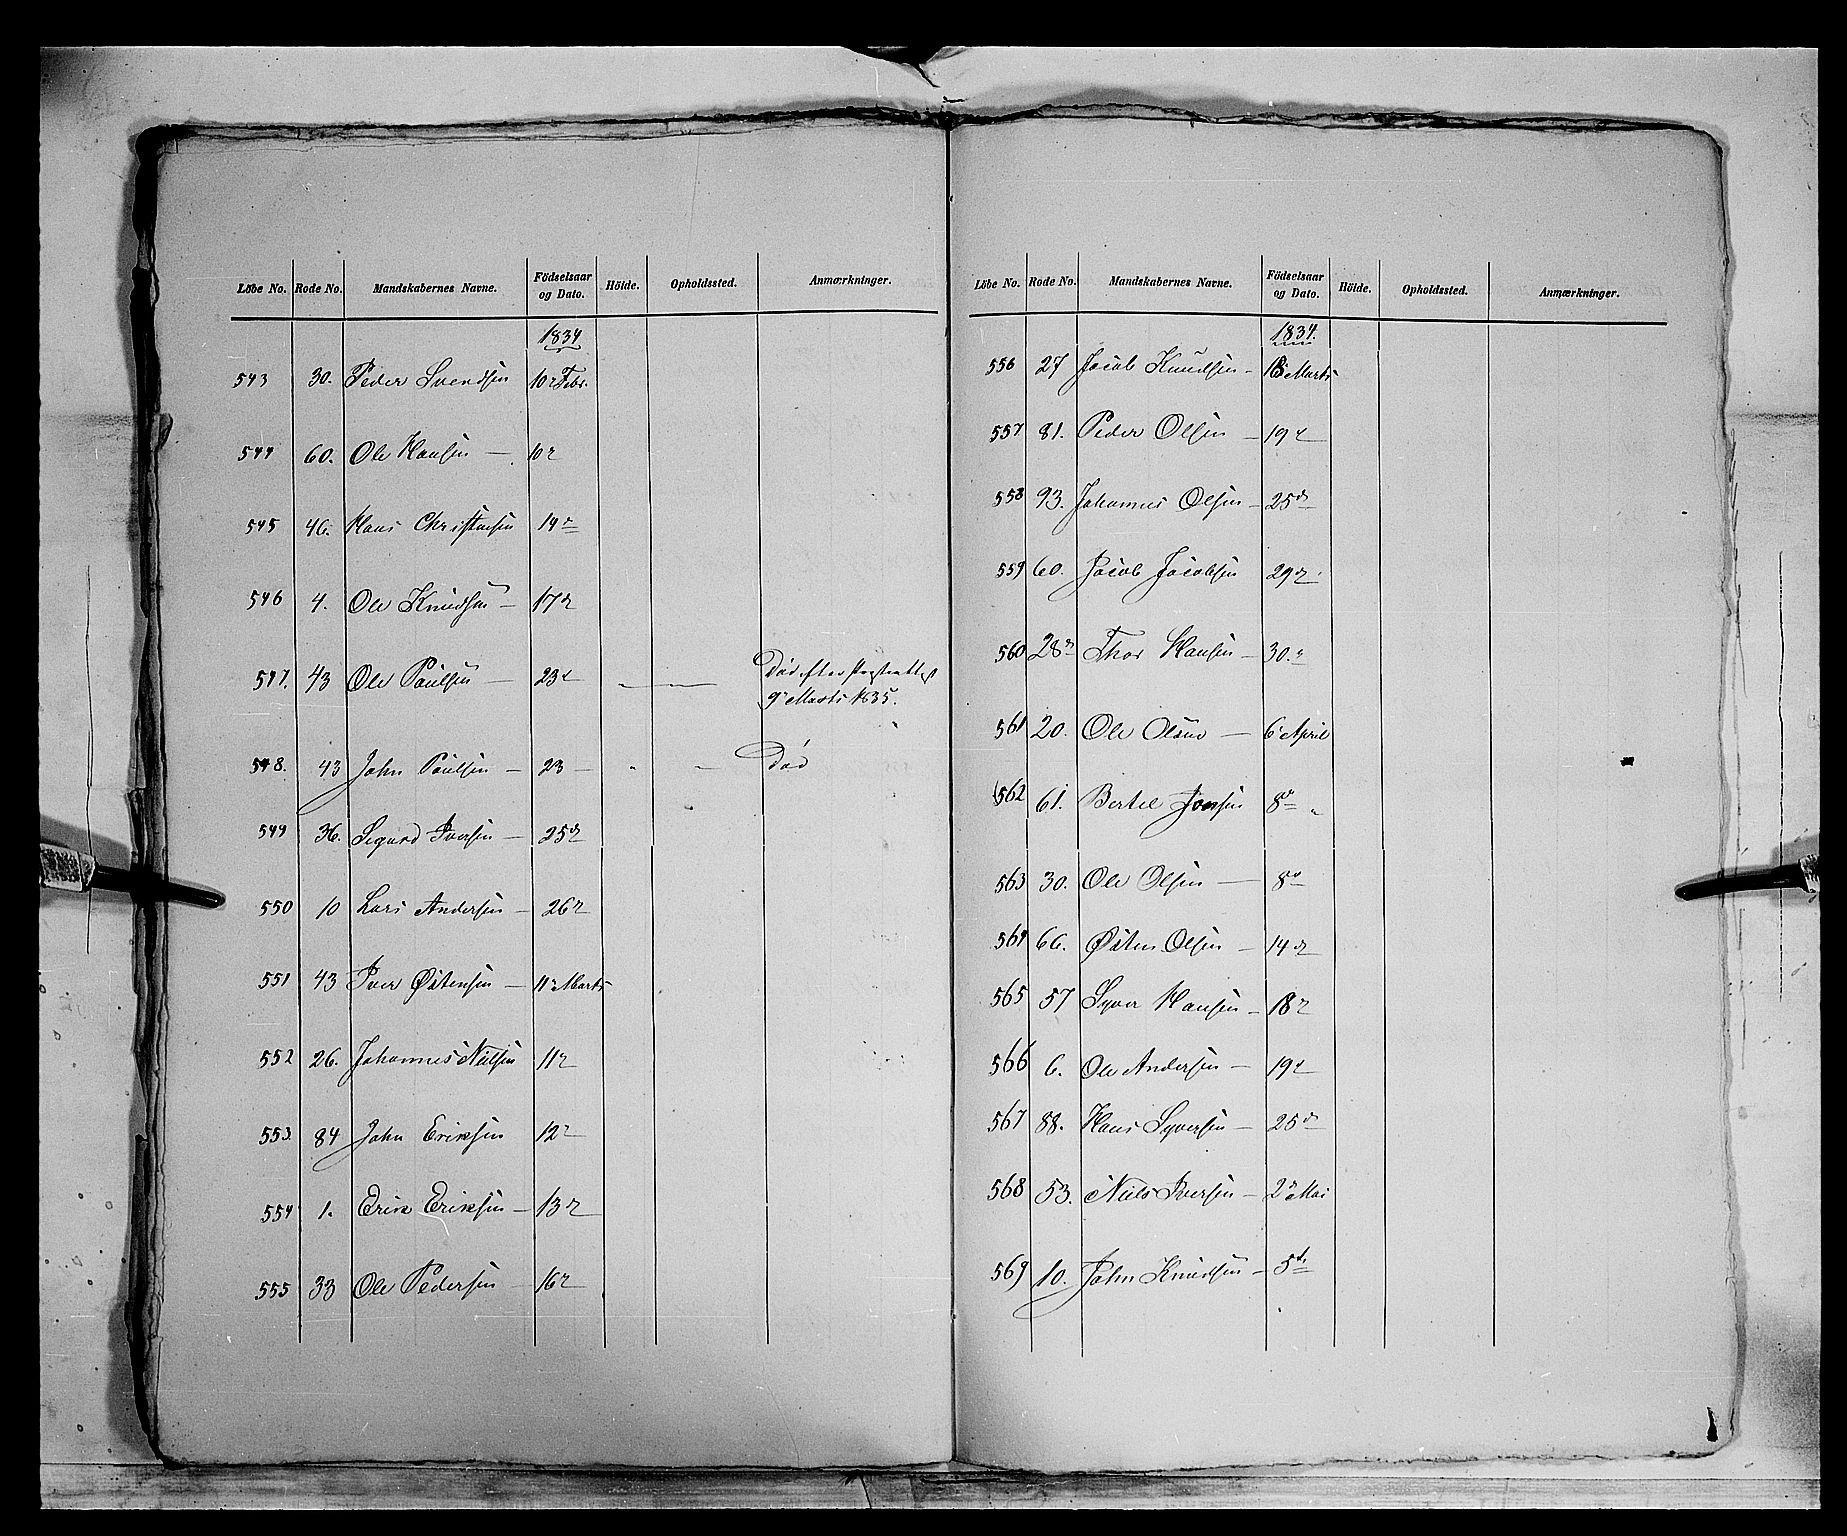 Löbe No. Rode No. Mandskabernes Navne. Födselsaar og Dato. Höide. Opholdssted. Anmærkninger.
1834
543 30. Peder Svendsen 10 Febr.
544 60. Ole Hansen — 10
545 46. Hans Christensen 14
546 4. Ole Knudsen — 17
547. 43 Ole Paulsen — 23 Død efter Præsteattest
9 Marts 1835.
548. 43 John Paulsen — 23 — Død
549 36. Segurd Iversen — 25
550 10 Lars Andersen — 26
551 43 Iver Østensen — 11 Marts
552 26. Johannes Nielsen 11
553. 84 John Eriksen 12
554 1. Erik Eriksen — 13
555 33 Ole Pedersen — 16
Löbe No. Rode No. Mandskabernes Navne. Födselsaar og Dato. Höide. Opholdssted. Anmærkninger.
1834.
556 27 Jacob Knudsen — Marts
557 81. Peder Olsen — 19
558 93. Johannes Olsen — 25
559 60. Jacob Jacobsen 29
560 28 Thor Hansen — 30.
561 20. Ole Olsen — 6 April
562 61. Bertel Jonsen 8
563 30. Ole Olsen — 8
564 66. Østen Olsen — 14
565 57 Syver Hansen — 18
566 6. Ole Andersen — 19
567 88. Hans Syversen — 25
568 53. Niels Iversen — 2 Mai
569 10. John Knudsen — 5